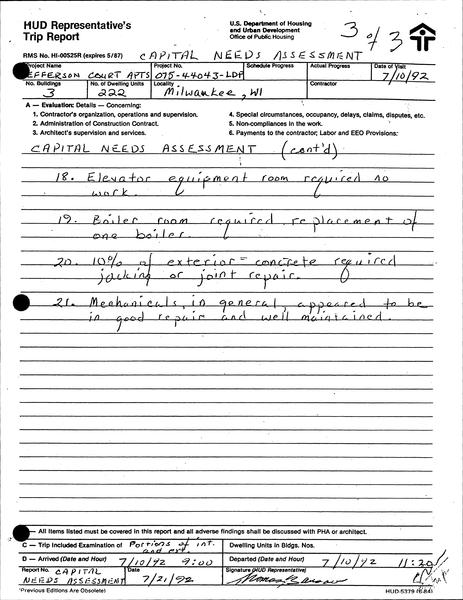 HUD Representative's
Trip Report
U.S. Department of Housing
and Urban Development
Office of Public Housing
3 of 3
RMS No. HI-00525R (expires 5/87)
CAPITAL NEEDS ASSESSMENT
Project Name
Project No.
Schedule Progress
Actual Progress
Date of Visit
JEFFERSON COURT APTS
075-44043-LDP
7/10/92
No. Buildings
No. of Dwelling Units
Locality
Contractor
3
222
Milwaukee, WI
A — Evaluation: Details — Concerning:
1. Contractor's organization, operations and supervision.
2. Administration of Construction Contract.
3. Architect's supervision and services.
4. Special circumstances, occupancy, delays, claims, disputes, etc.
5. Non-compliances in the work.
6. Payments to the contractor; Labor and EEO Provisions:
CAPITAL NEEDS ASSESSMENT (cont'd)
18. Elevator equipment room required no
work.
19. Boiler room required replacement of
one boiler.
20. 10% of exterior concrete required
jacking or joint repair.
21. Mechanicals, in general, appeared to be
in good repair and well maintained.
— All items listed must be covered in this report and all adverse findings shall be discussed with PHA or architect.
C — Trip Included Examination of
Portions of int.
and ext.
Dwelling Units in Bldgs. Nos.
D — Arrived (Date and Hour)
7/10/92 9:00
Departed (Date and Hour)
7/10/92 11:20
Report No.
CAPITAL
NEEDS ASSESSMENT
Date
7/21/92
Signature (HUD Representative)
*Previous Editions Are Obsolete)
HUD-5379 (6.84)